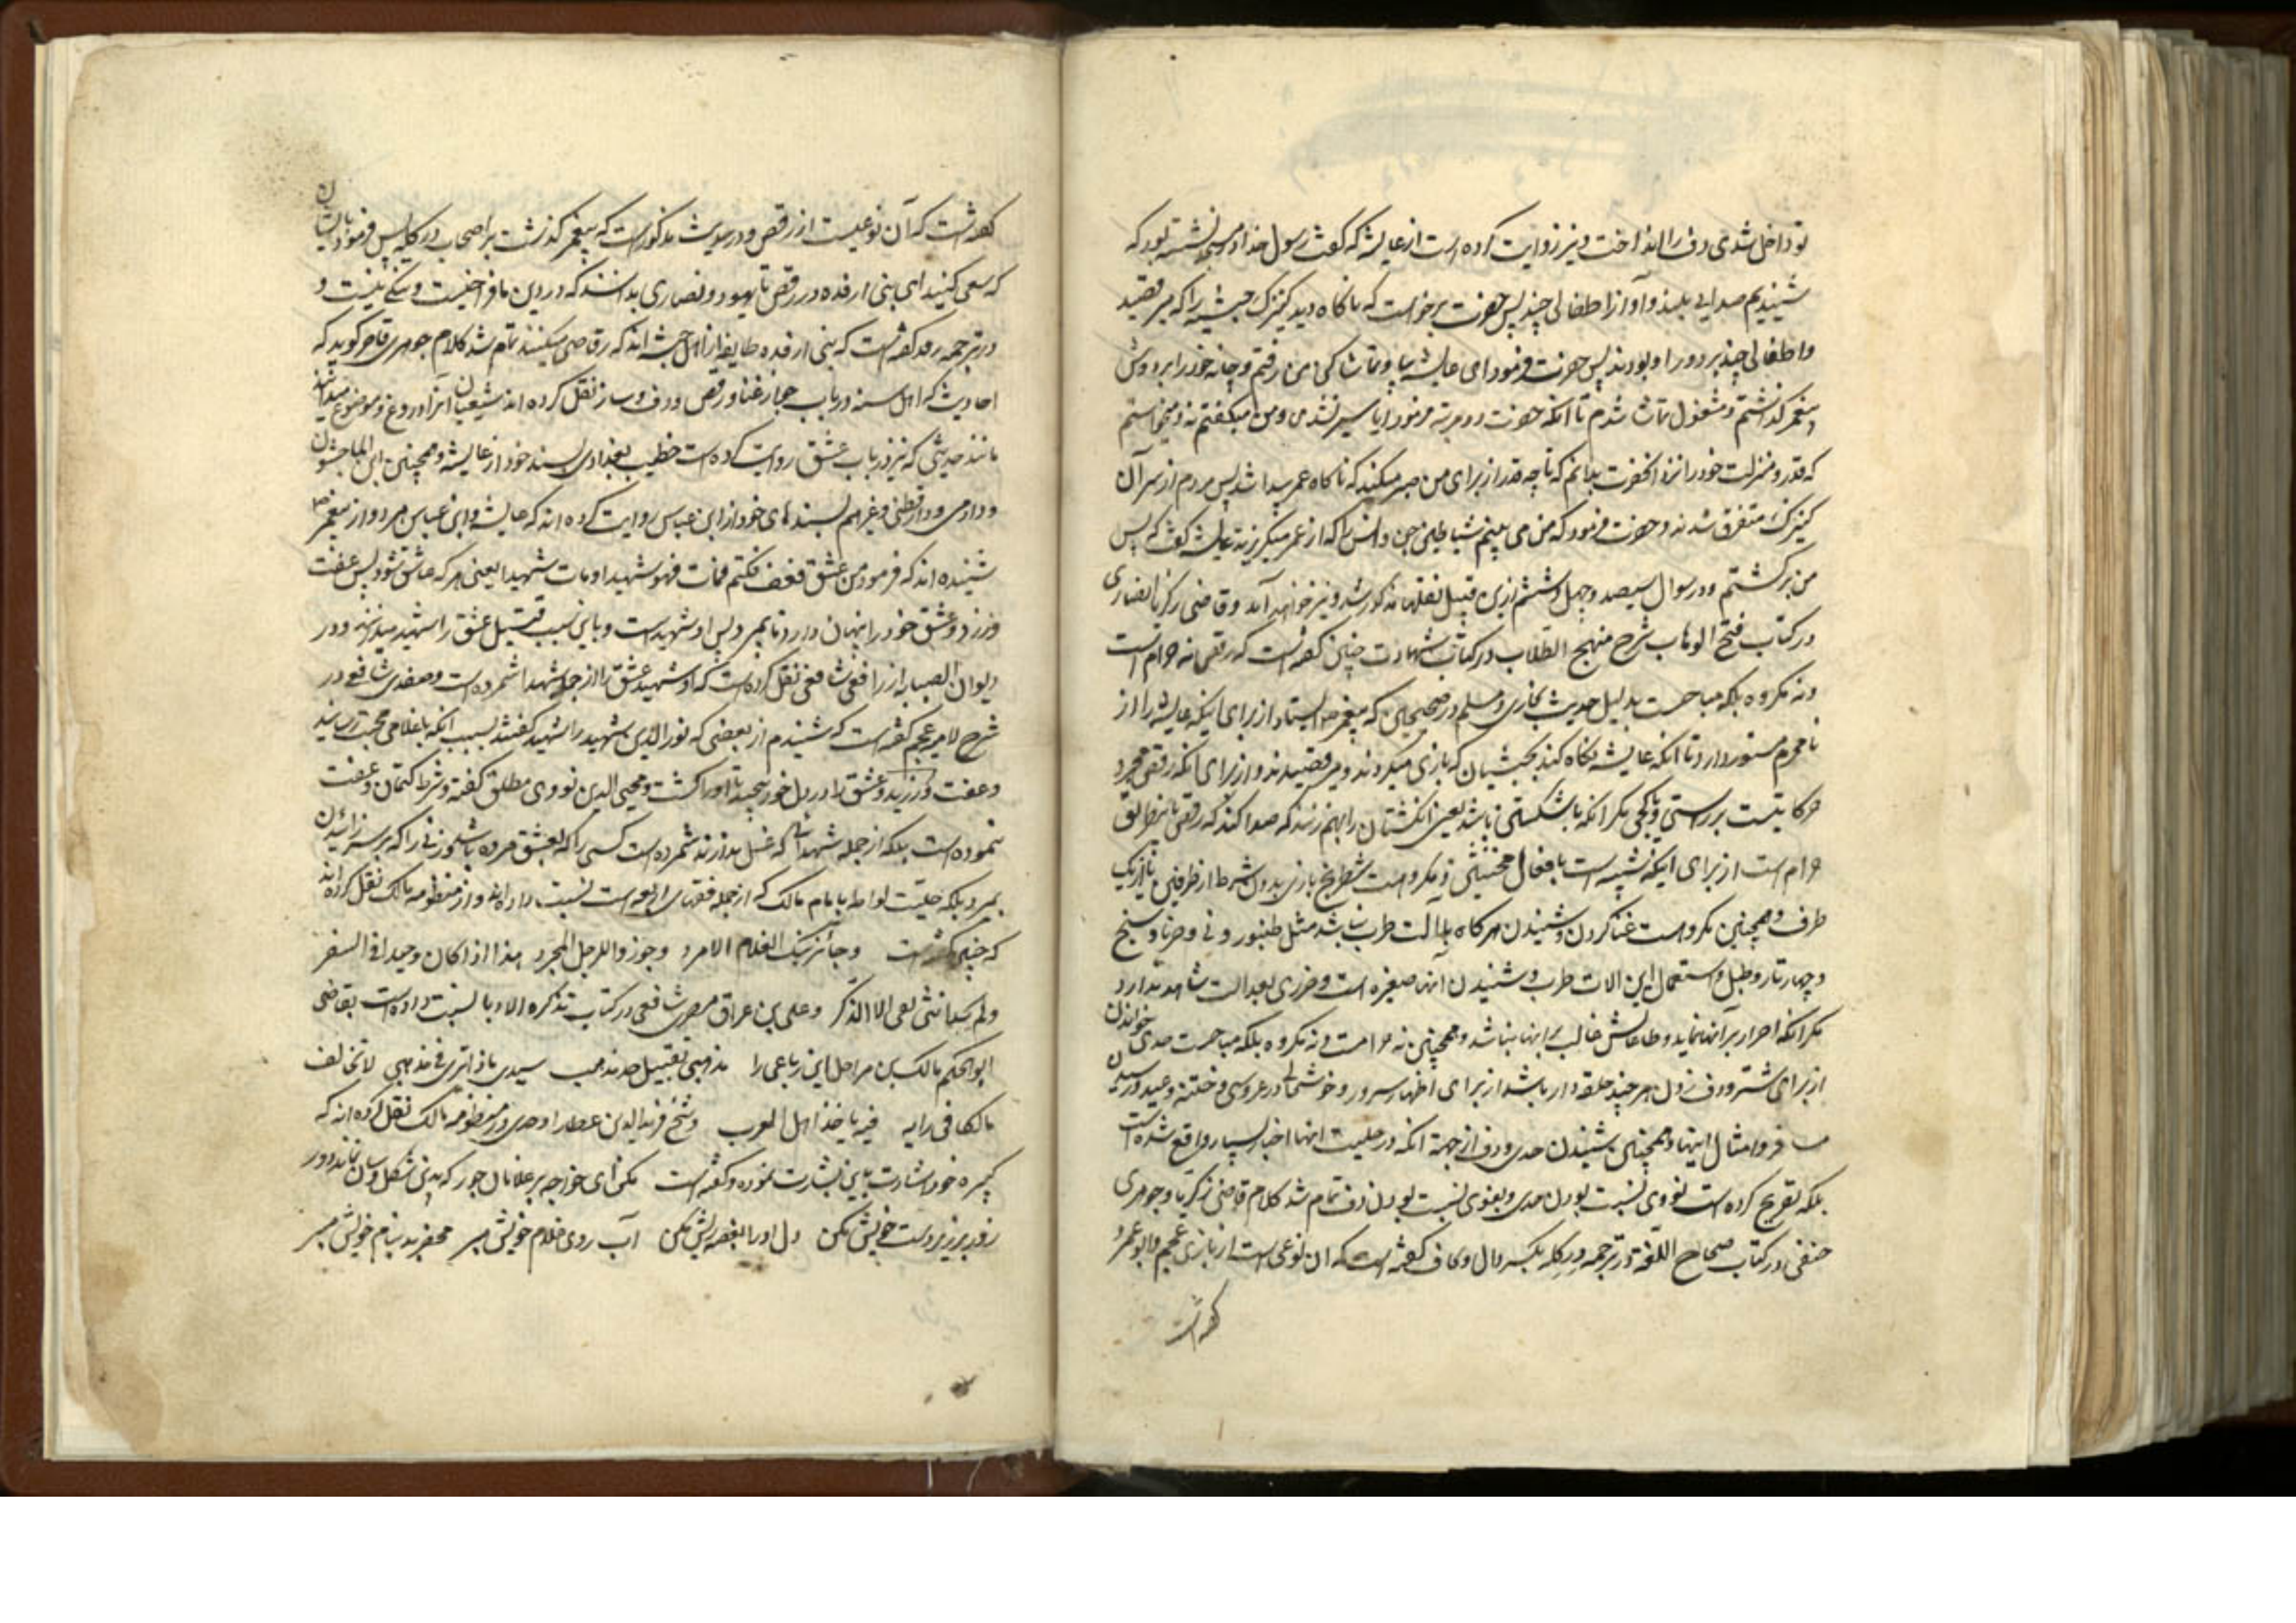 تو داخل شدی دف را انداخت و نیز روایت کرده است از عایشه که گفت رسول خدا ص نشسته بود که
شنیدیم صدایی بلند و آواز اطفالی چند پس حضرت برخواست که ناکاه دید کنیزک حبشیه را که میرقصید
و اطفالی چند بر دور او بودند پس حضرت فرمود ای عایشه بیا و تماشا کن من رفتم و چانه خود را بر دوش
پیغمبر گذاشتم و مشغول تماشا شدم تا آنکه حضرت دو مرتبه فرمود آیا سیر نشدی و من میگفتم نه و میخواستم
که قدر و منزلت خود را نزد آنحضرت بدانم که تا چه قدر از برای من صبر میکند که ناکاه عمر پیدا شد پس مردم از سر آن
کنیزک متفرق شدند و حضرت فرمود که من می بینم شیاطین جن و انس را که از عمر میگریزند عایشه گفت که پس
من برگشتم و در سوال سیصد و چهل و ششم ازین قبیل نقلها مذکور شد و نیز خواهد آمد و قاضی زکریا انصاری
در کتاب فتح الوهاب شرح منهج الطلاب در کتاب شهادت چنین گفته است که رقص نه حرام است
و نه مکروه بلکه مباحست بدلیل حدیث بخاری و مسلم در صحیحین که پیغمبر ص ایستاد از برای اینکه عایشه را از
نامحرم مستور دارد تا آنکه عایشه نگاه کند بحبشیان که بازی میکردند و میرقصیدند و از برای آنکه رقص مجرد
حرکاتیست بر راستی و کجی مکر آنکه با شکستن باشد یعنی انگشتان را بهم زنند که صدا کند که رقص باین طریق
حرام است از برای اینکه شبیه است بافعال مخنثین و مکروه است شطرنج بازی بدون شرط از طرفین یا از یک
طرف و همچنین مکروه است غنا کردن و شنیدن هرکاه با آلت طرب نباشد مثل طنبور و نی و سرنا و سنج
و چهار تار و طبل و استعمال این الات طرب و شنیدن آنها صغیره است و ضرری بعدالت شاهد ندارد
مکر آنکه اصرار بر آنها نماید و طاعاتش غالب بر اینها نباشد و همچنین نه حرامست و نه مکروه بلکه مباحست حدی خواندن
از برای شتر و دف زدن هر چند حلقه دار باشد از برای اظهار سرور و خوشحالی در عروسی و ختنه و عید و رسیدن
مسافر و امثال اینها و همچنین شنیدن حدی و دف از جهة آنکه در حلیت اینها اخبار بسیار واقع شده است
بلکه تصریح کرده است نووی بسنت بودن حدی و بغوی بسنت بودن دف تمام شد کلام قاضی زکریا و جوهری
حنفی در کتاب صحاح اللغة در ترجمه درکله بکسر دال و کاف گفته است که ان نوعی است از بازی عجم و ابو عمرو
گفته است
گفته است که آن نوعیست از رقص و در حدیث مذکور است که پیغمبر گذشت بر اصحاب درکله پس فرمود بایشان
که سعی کنید ای بنی ارفده در رقص تا یهود و نصاری بدانند که در دین ما فراخیست و تنگی نیست و
در ترجمه رفد گفته است که بنی ارفده طایفه از اهل حبشه اند که رقاصی میکنند تمام شد کلام جوهری قاصر گوید که
احادیثی که اهل سنه در باب جواز غنا و رقص و دف و ساز نقل کرده اند شیعیان آنرا دروغ و موضوع میدانند
مانند حدیثی که نیز در باب عشق روایت کرده است خطیب بغدادی بسند خود از عایشه و همچنین ابن الماجشون
و دارمی و دارقطنی و غیرهم بسندهای خود از ابن عباس روایت کرده اند که عایشه و ابن عباس هر دو از پیغمبر ص
شنیده اند که فرمود من عشق فعف فکتم فمات فهو شهید او مات شهیدا یعنی هر که عاشق شود پس عفت
ورزد و عشق خود را پنهان دارد تا بمیرد پس او شهید است و باین سبب قتیل عشق را شهید میدانند و در
دیوان الصبابه از رافعی شافعی نقل کرده است که او شهید عشق را از جمله شهدا شمرده است و صفدی شافعی در
شرح لامیه عجم گفته است که شنیدم از بعضی که نور الدین شهید را شهید گفتند بسبب آنکه باغلامی محبت رسانید
و عفت ورزید و عشق را در دل خود پیچید تا او را کشت و محیی الدین نووی مطلق گفته و شرط کتمان و عفت
ننموده است بلکه از جمله شهدا که غسل ندارند شمرده است کسی را که بعشق مرده باشد و زنی را که بر سر زائیدن
بمیرد بلکه حلیت لواطه با مام مالک که از جمله فقهای اربعه است نسبت داده اند و از منظومه مالک نقل کرده اند
که چنین گفته است و جائز نیک الغلام الامرد و جوزوا للرجل المجرد هذا اذا کان وحیدا فی السفر
ولم یجد انثی تفی الا الذکر و علی بن عراق مصری شافعی در کتاب تذکره الادبا نسبت داده است بقاضی
ابو الحکم مالک بن مراحل این رباعی را مذهبی تقبیل خد مذهب سیدی ماذا تری فی مذهبی لا تخالف
مالکا فی رایه فبه یاخذ اهل المغرب و شیخ فرید الدین عطار اوحدی در منظومه مالک نقل کرده اند که
خود اشارت باین بشارت نموده و گفته است مکن ای خواجه بر غلامان جور که بدین شکل و سان نماند دور
زور بر زیر دست خویش مکن دل او را بغصه ریش مکن آب روی غلام خویش مبر محضر بد بنام خویش مبر